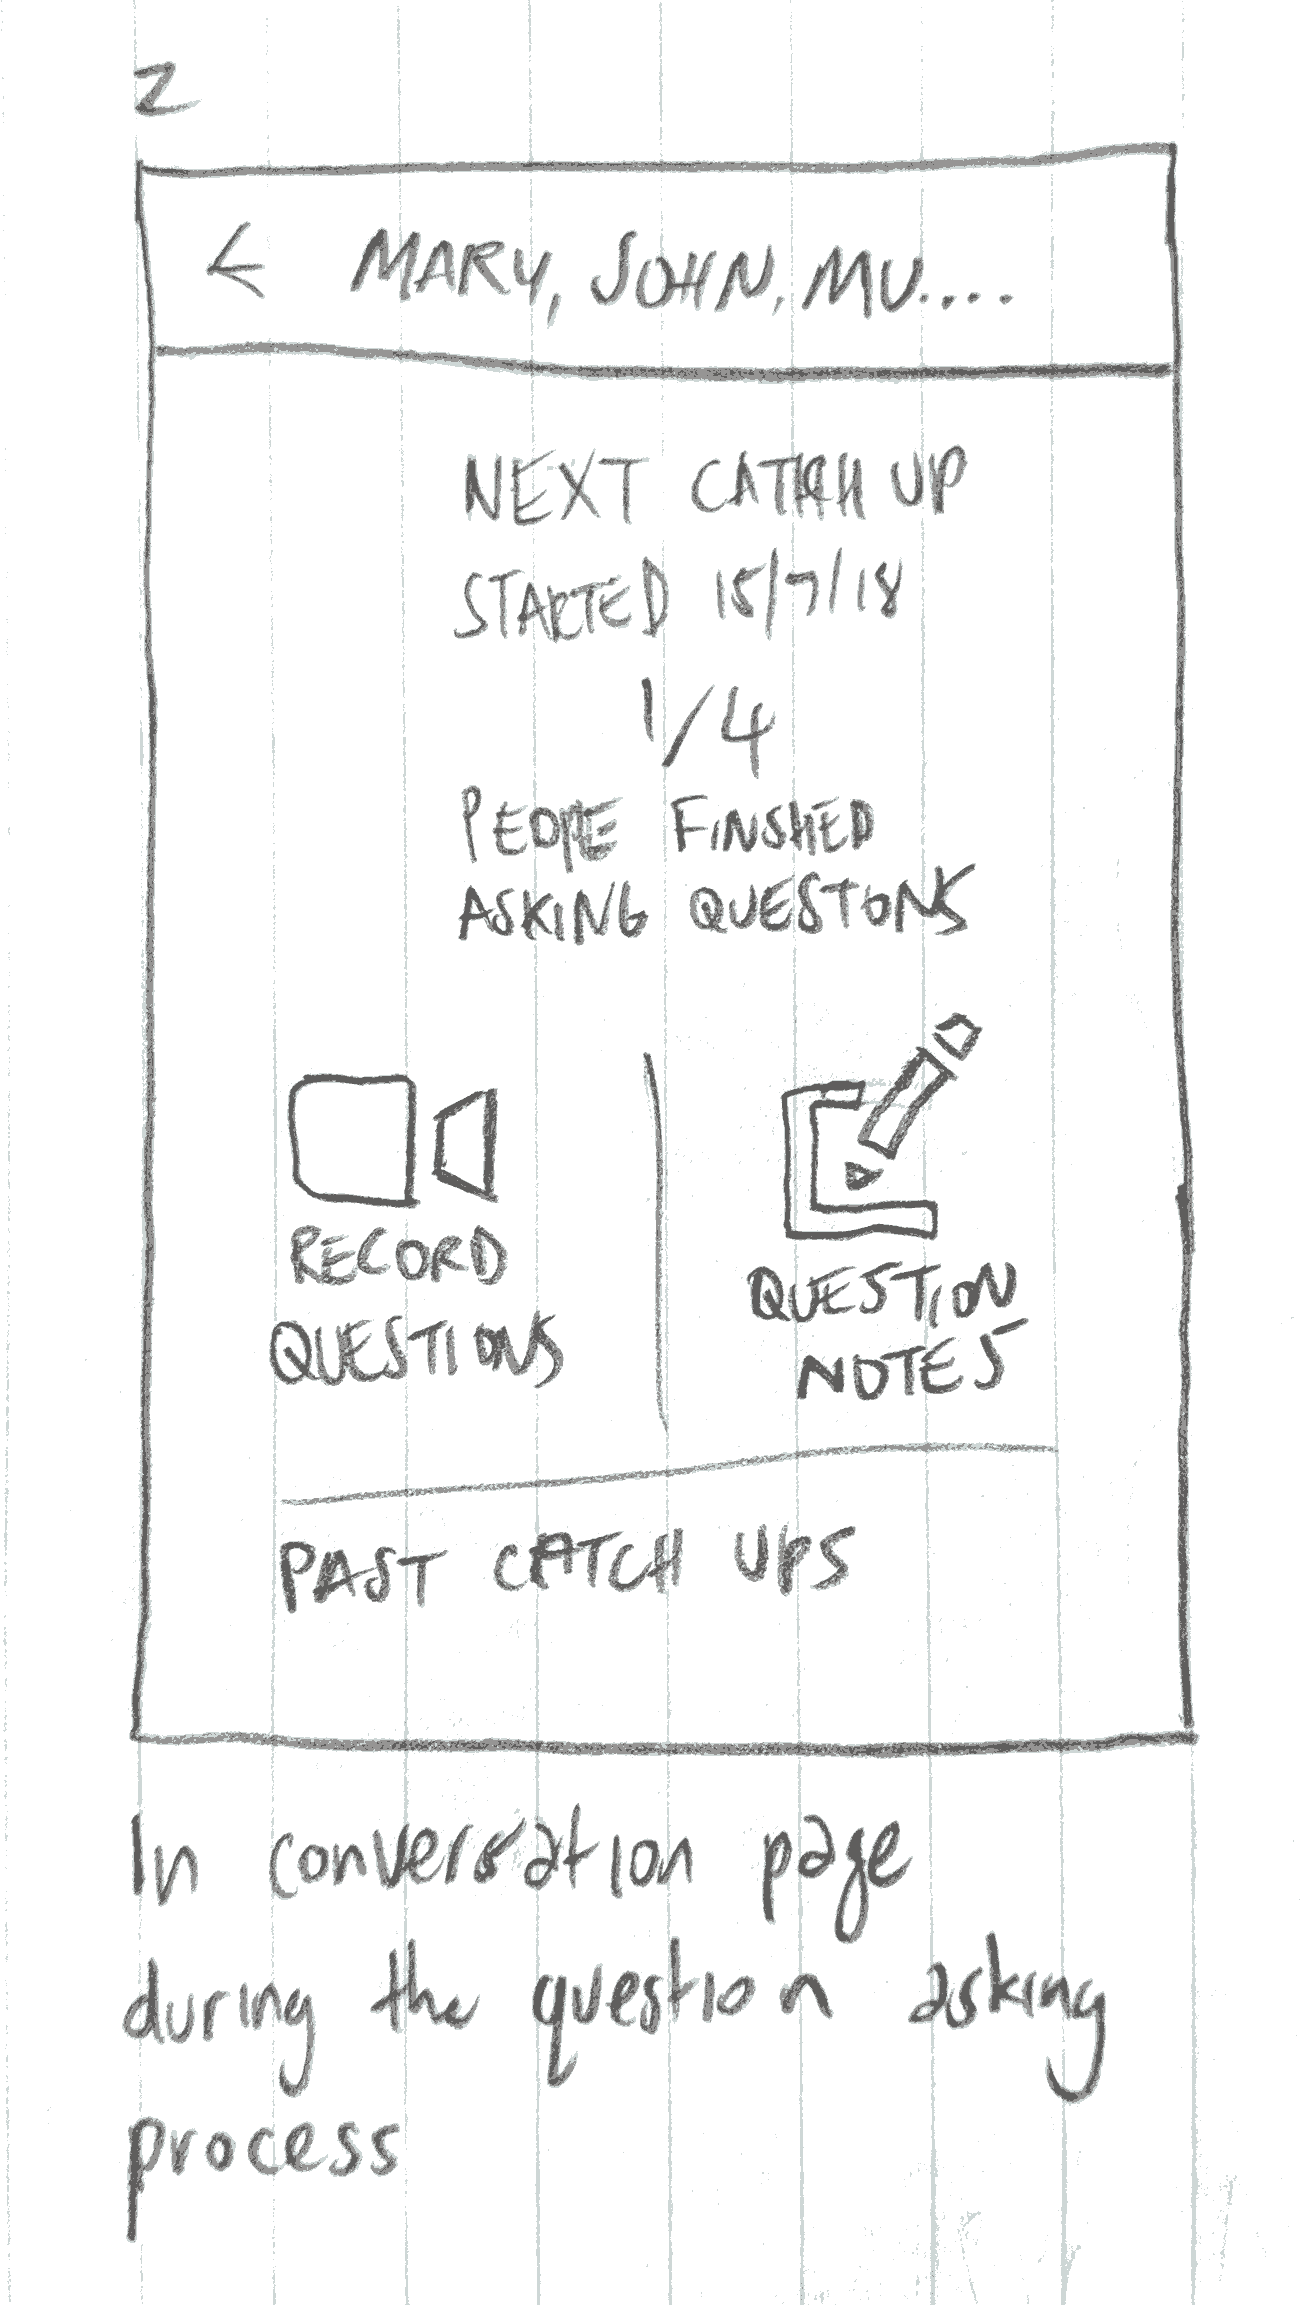 2
← MARY, JOHN, MU....
NEXT CATCH UP
STARTED 15/7/18
1/4
PEOPLE FINSHED
ASKING QUESTONS
RECORD
QUESTIONS
QUESTION
NOTES
PAST CATCH UPS
In conversation page
during the question asking
process